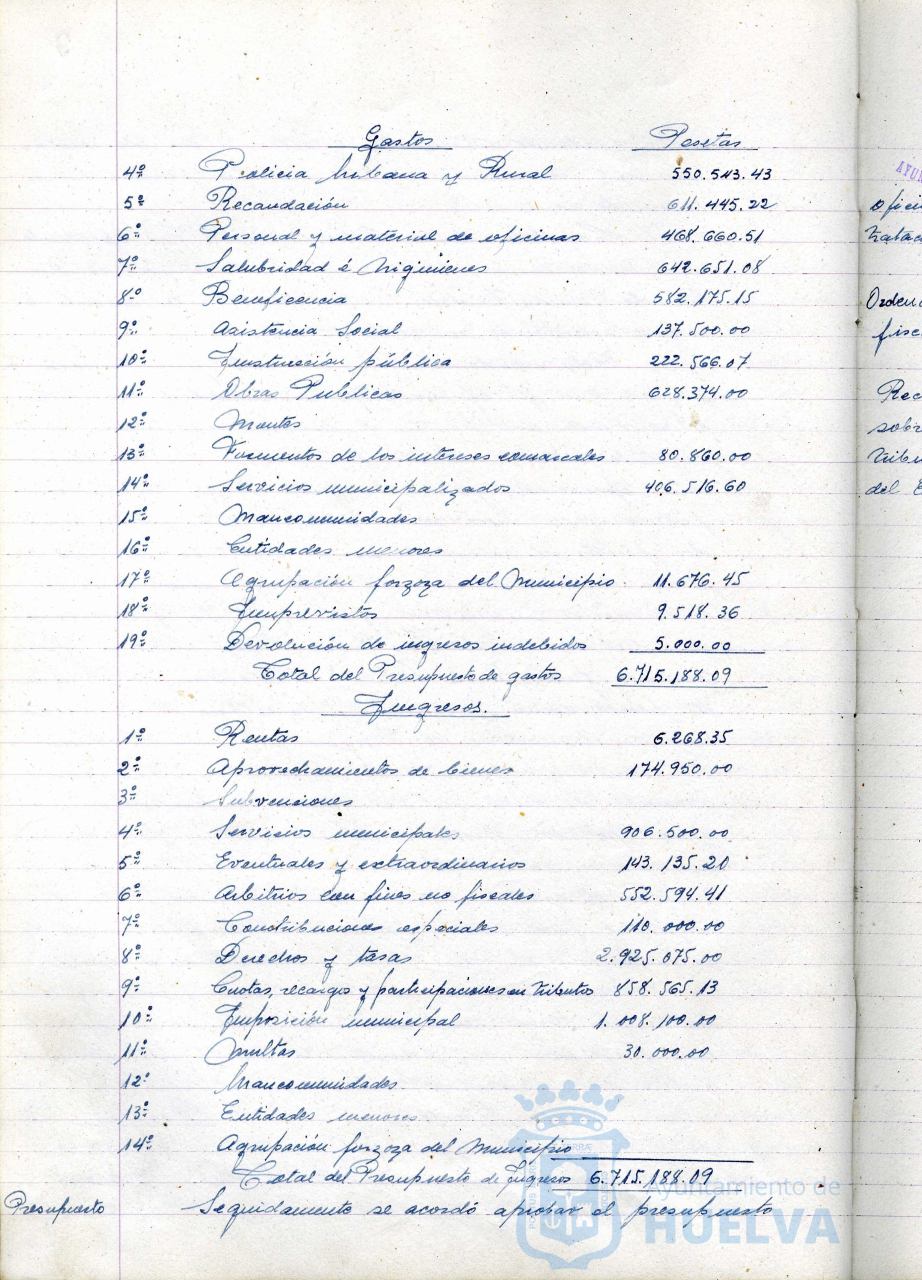 Gastos Pesetas
4º Policia Urbana y Rural 550.543.43
5º Recaudación 611.445.22
6º Personal y material de oficinas 468.660.51
7º Salubridad é higiniene 642.651.08
8º Beneficencia 582.175.15
9º Asistencia Social 137.500.00
10º Instrucción pública 222.566.07
11º Obras Publicas 628.374.00
12º Montes
13º Fomentos de los intereses comarcales 80.860.00
14º Servicios municipalizados 406.516.60
15º Mancomunidades
16º Entidades menores
17º Agrupación forzoza del Municipio. 11.676.45
18º Imprevistos 9.518.36
19º Devolución de ingresos indebidos 5.000.00
Total del Presupuesto de gastos 6.715.188.09
Ingresos.
1º Rentas 6.268.35
2º Aprovechamientos de bienes 174.950.00
3º Subvenciones
4º Servicios municipales 906.500.00
5º Eventuales y extraordinarios 143.135.20
6º Arbitrios con fines no fiscales 552.594.41
7º Contribuciones especiales 110.000.00
8º Derechos y tasas 2.925.075.00
9º Cuotas, recargos y participaciones en tributos 858.565.13
10º Imposición municipal 1.008.100.00
11º Multas 30.000.00
12º Mancomunidades
13º Entidades menores
14º Agrupación forzoza del Municipio
Total del Presupuesto de Ingresos 6.715.188.09
Presupuesto Seguidamente se acordó aprobar el presupuesto
Ayuntamiento de
HUELVA
AYUN
Orden
fisc
Rec
sobr
del E